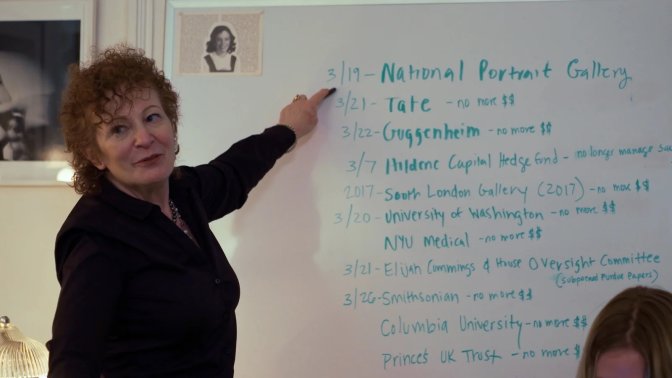 3/19 - National Portrait Gallery
3/21 - Tate - no more $$
3/22 - Guggenheim - no more $$
3/7 Hildene Capital Hedge Fund - no longer manage
2017 - South London Gallery (2017) - no more $$
3/20 - University of Washington - no more $$
NYU Medical - no more $$
3/21 - Elijah Cummings & House Oversight Committee
(Subpoenaed Purdue Papers)
3/26 - Smithsonian - no more $$
Columbia University - no more $$
Prince's UK Trust - no more $$